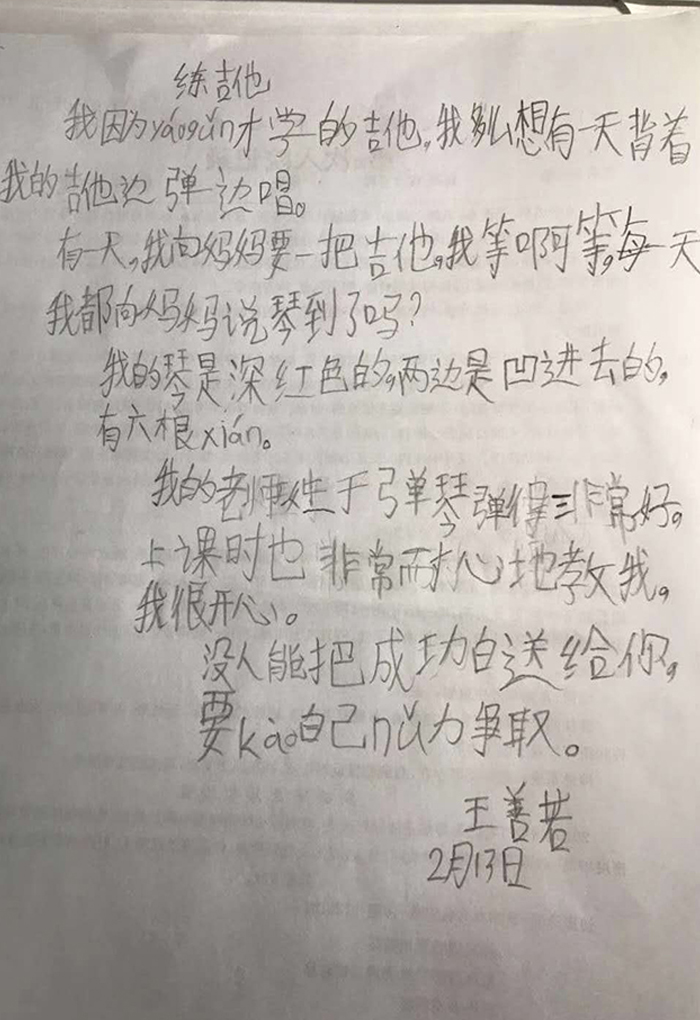 练吉他
我因为yáogǔn才学的吉他,我多么想有一天背着
我的吉他边弹边唱。
有一天,我向妈妈要一把吉他,我等啊等,每一天
我都向妈妈说琴到了吗?
我的琴是深红色的,两边是凹进去的,
有六根xián。
我的老师姓于弹琴弹得非常好。
上课时也非常耐心地教我,
我很开心。
没人能把成功白送给你,
要kào自己nǔ力争取。
王善若
2月13日